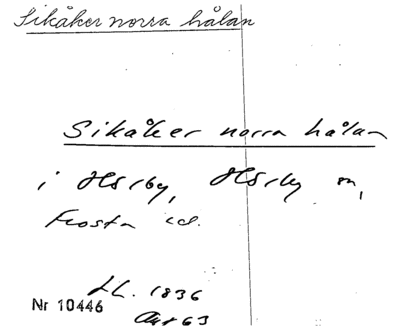 Sikåker norra hålan
Sikåker norra hålan
i Hörby, Hörby sn,
Frosta hd.
LL. 1836
Nr 10446
Akt 63